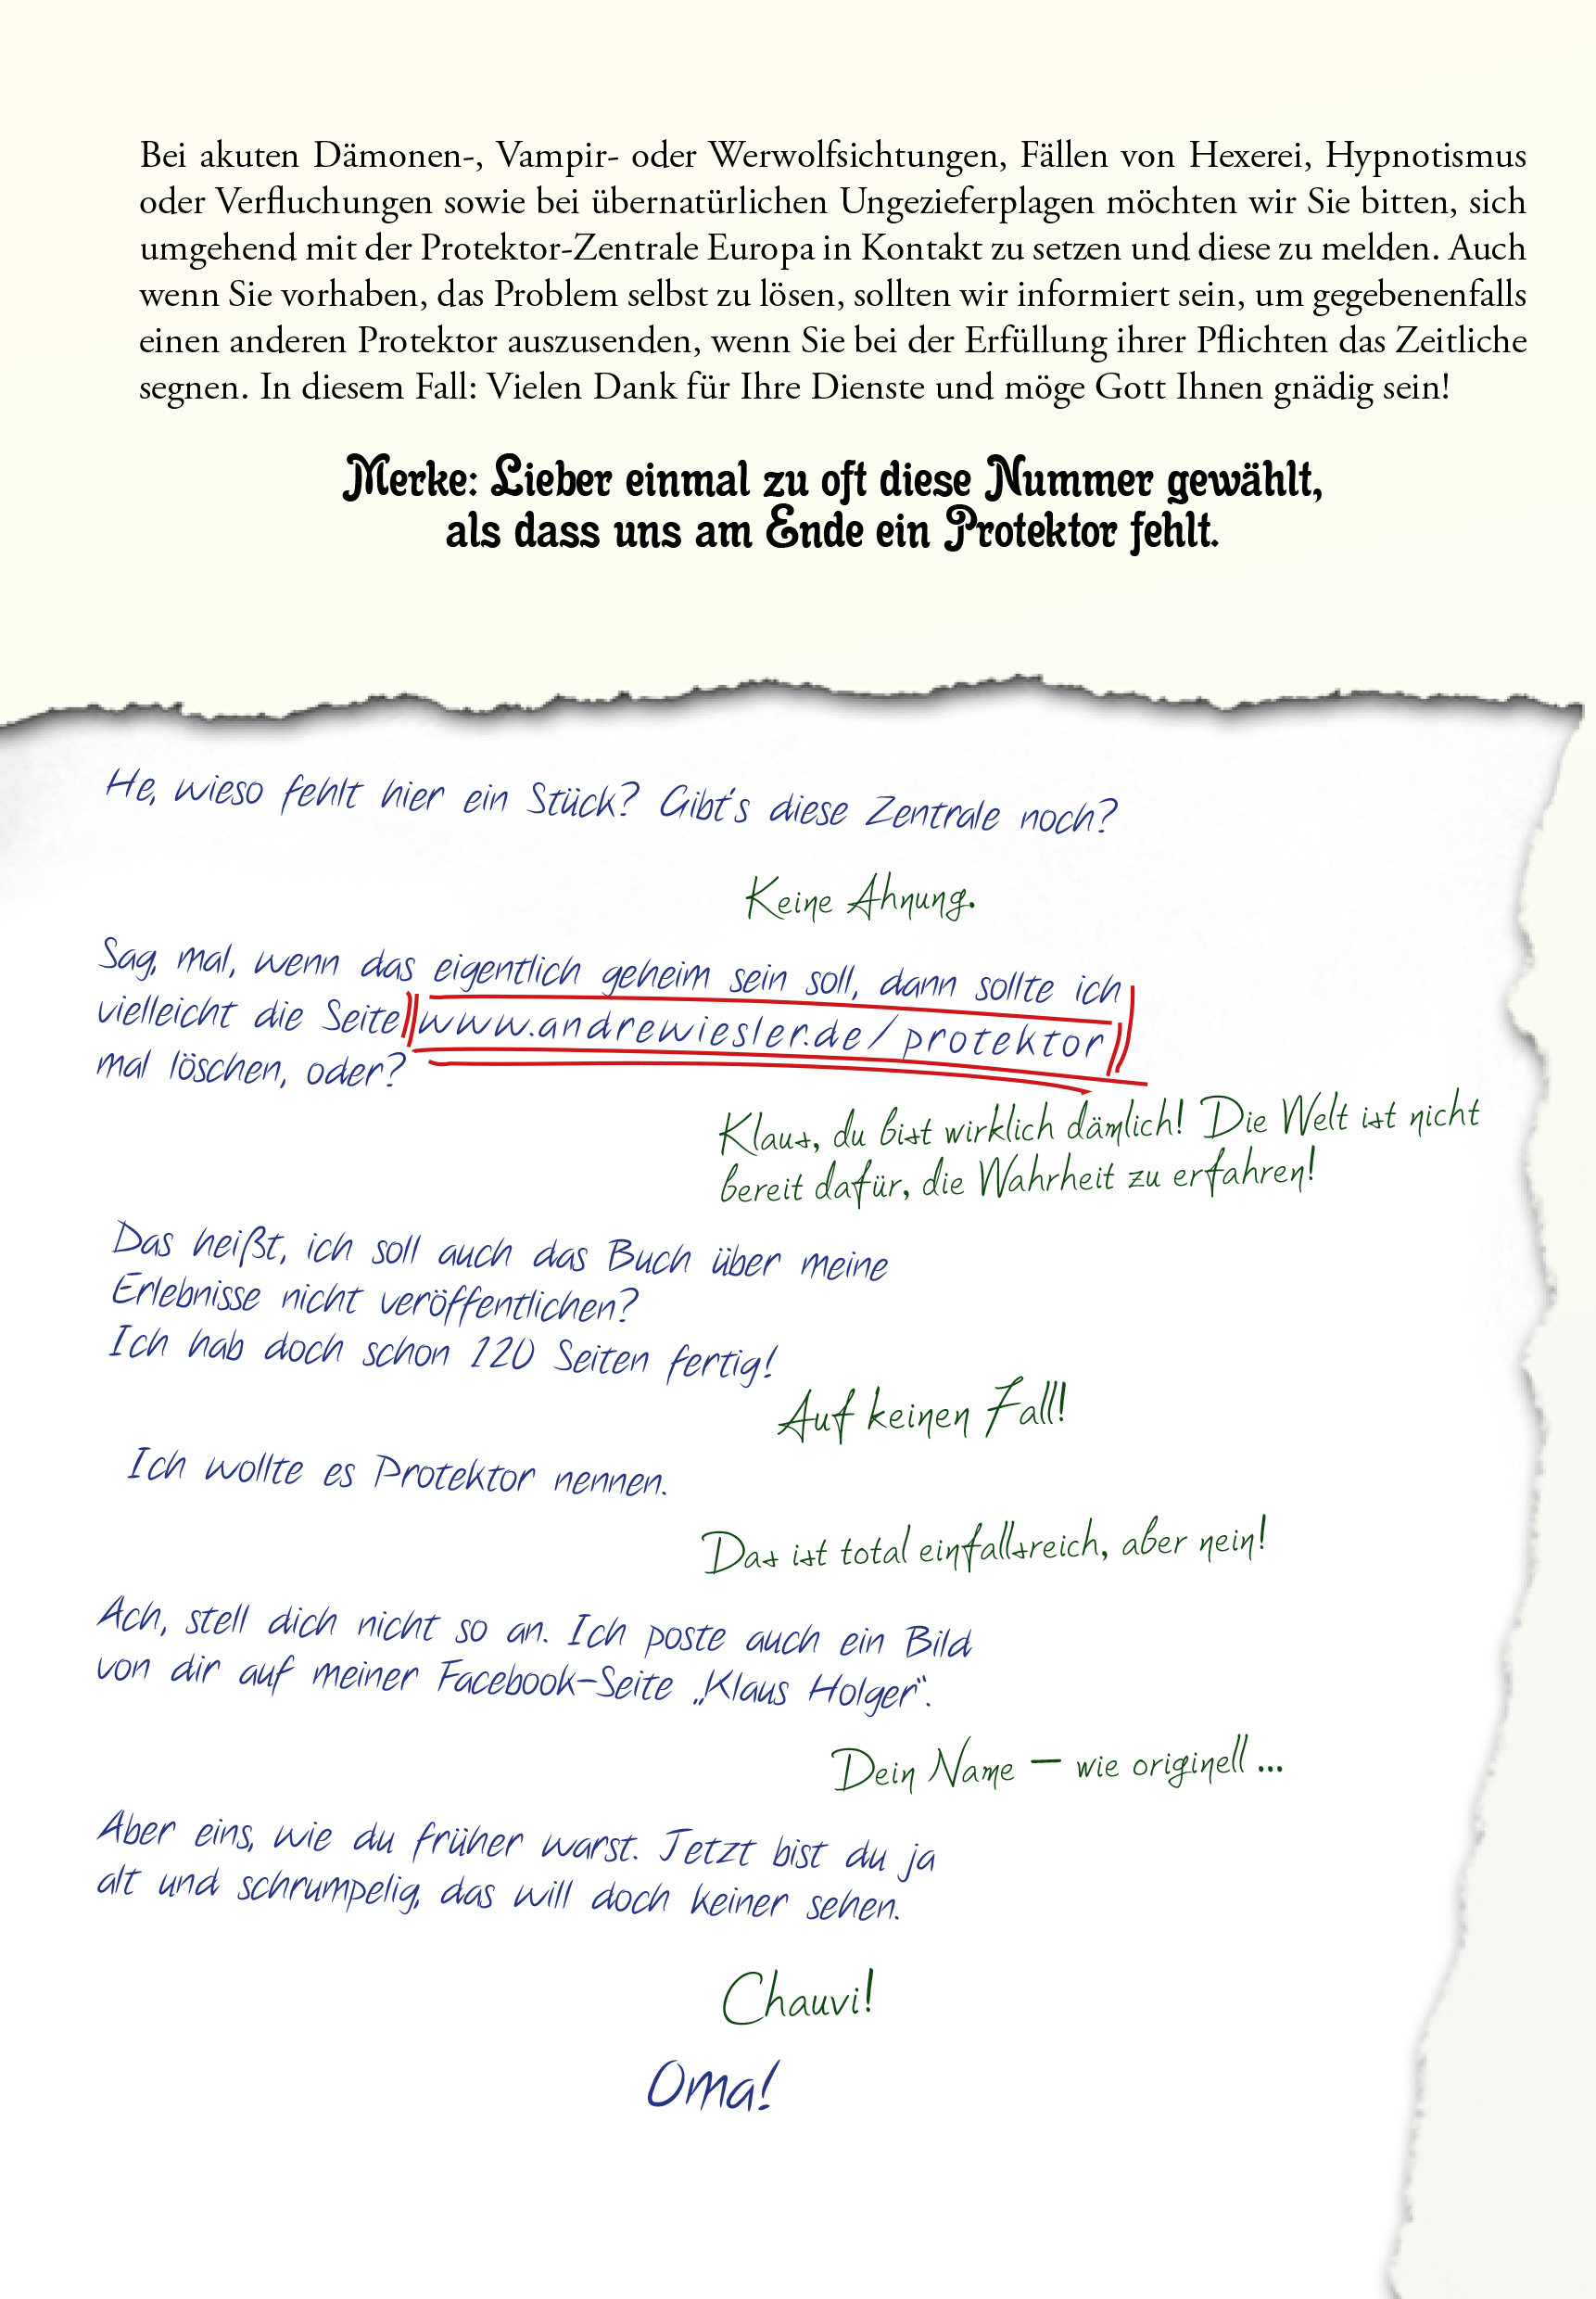 Bei akuten Dämonen-, Vampir- oder Werwolfsichtungen, Fällen von Hexerei, Hypnotismus
oder Verfluchungen sowie bei übernatürlichen Ungezieferplagen möchten wir Sie bitten, sich
umgehend mit der Protektor-Zentrale Europa in Kontakt zu setzen und diese zu melden. Auch
wenn Sie vorhaben, das Problem selbst zu lösen, sollten wir informiert sein, um gegebenenfalls
einen anderen Protektor auszusenden, wenn Sie bei der Erfüllung ihrer Pflichten das Zeitliche
segnen. In diesem Fall: Vielen Dank für Ihre Dienste und möge Gott Ihnen gnädig sein!
Merke: Lieber einmal zu oft diese Nummer gewählt,
als dass uns am Ende ein Protektor fehlt.
He, wieso fehlt hier ein Stück? Gibt's diese Zentrale noch?
Keine Ahnung.
Sag, mal, wenn das eigentlich geheim sein soll, dann sollte ich
vielleicht die Seite www.andrewiesler.de/protektor
mal löschen, oder?
Klaus, du bist wirklich dämlich! Die Welt ist nicht
bereit dafür, die Wahrheit zu erfahren!
Das heißt, ich soll auch das Buch über meine
Erlebnisse nicht veröffentlichen?
Ich hab doch schon 120 Seiten fertig!
Auf keinen Fall!
Ich wollte es Protektor nennen.
Das ist total einfallsreich, aber nein!
Ach, stell dich nicht so an. Ich poste auch ein Bild
von dir auf meiner Facebook-Seite „Klaus Holger“.
Dein Name – wie originell ...
Aber eins, wie du früher warst. Jetzt bist du ja
alt und schrumpelig, das will doch keiner sehen.
Chauvi!
Oma!